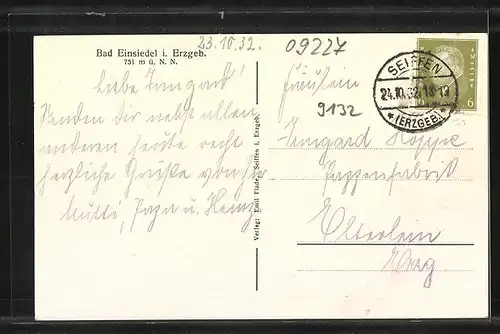 23.10.32.
09227
Bad Einsiedel i. Erzgeb.
751 m ü. N. N.
Liebe Irmgard!
Senden dir nebst allen
anderen heute recht
herzliche Grüße von hier
Mutti, Papa u. Heinz
Verlag: Emil Flade, Seiffen i. Erzgeb.
SEIFFEN
24.10.32. 18-19
*(ERZGEB.)*
6
Fräulein
9132
Irmgard Hoppe
Pappenfabrik
Elterlein
Erzg